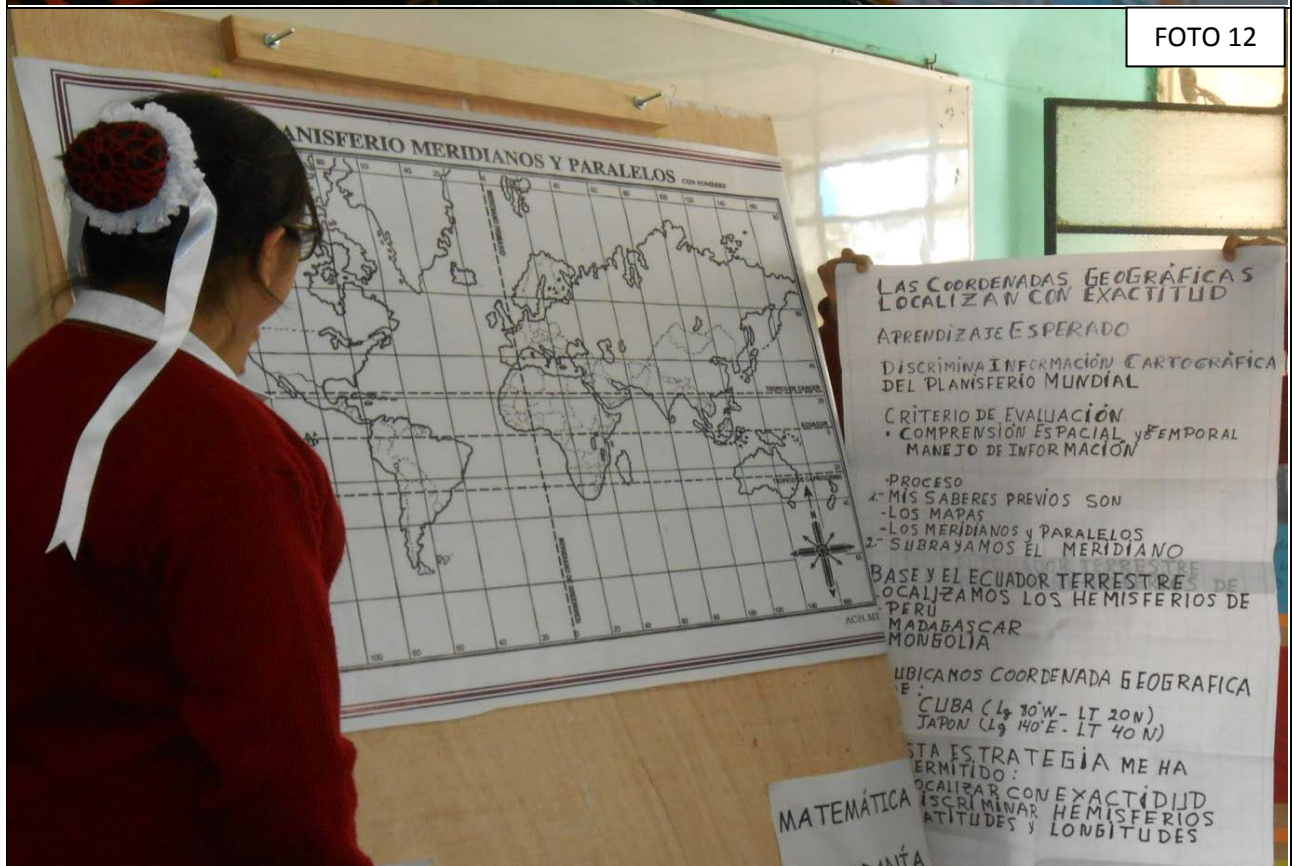 FOTO 12
ANISFERIO MERIDIANOS Y PARALELOS CON NOMBRES
TROPICO DE CANCER
ECUADOR
TROPICO DE CAPRICORNIO
N
ACH.M
LAS COORDENADAS GEOGRÁFICAS
LOCALIZAN CON EXACTITUD
APRENDIZAJE ESPERADO
DISCRIMINA INFORMACIÓN CARTOGRÁFICA
DEL PLANISFERIO MUNDIAL
CRITERIO DE EVALUACIÓN
• COMPRENSIÓN ESPACIAL y TEMPORAL
MANEJO DE INFORMACIÓN
•PROCESO
1.- MIS SABERES PREVIOS SON
-LOS MAPAS
-LOS MERIDIANOS y PARALELOS
2.- SUBRAYAMOS EL MERIDIANO
BASE Y EL ECUADOR TERRESTRE
OCALIZAMOS LOS HEMISFERIOS DE
PERÚ
MADAGASCAR
MONGOLIA
UBICAMOS COORDENADA GEOGRAFICA
E:
CUBA (Lg 80°W - LT 20N)
JAPON (Lg 140°E - LT 40 N)
STA ESTRATEGIA ME HA
ERMITIDO:
OCALIZAR CON EXACTIDUD
ISCRIMINAR HEMISFERIOS
ATITUDES y LONGITUDES
MATEMÁTICA